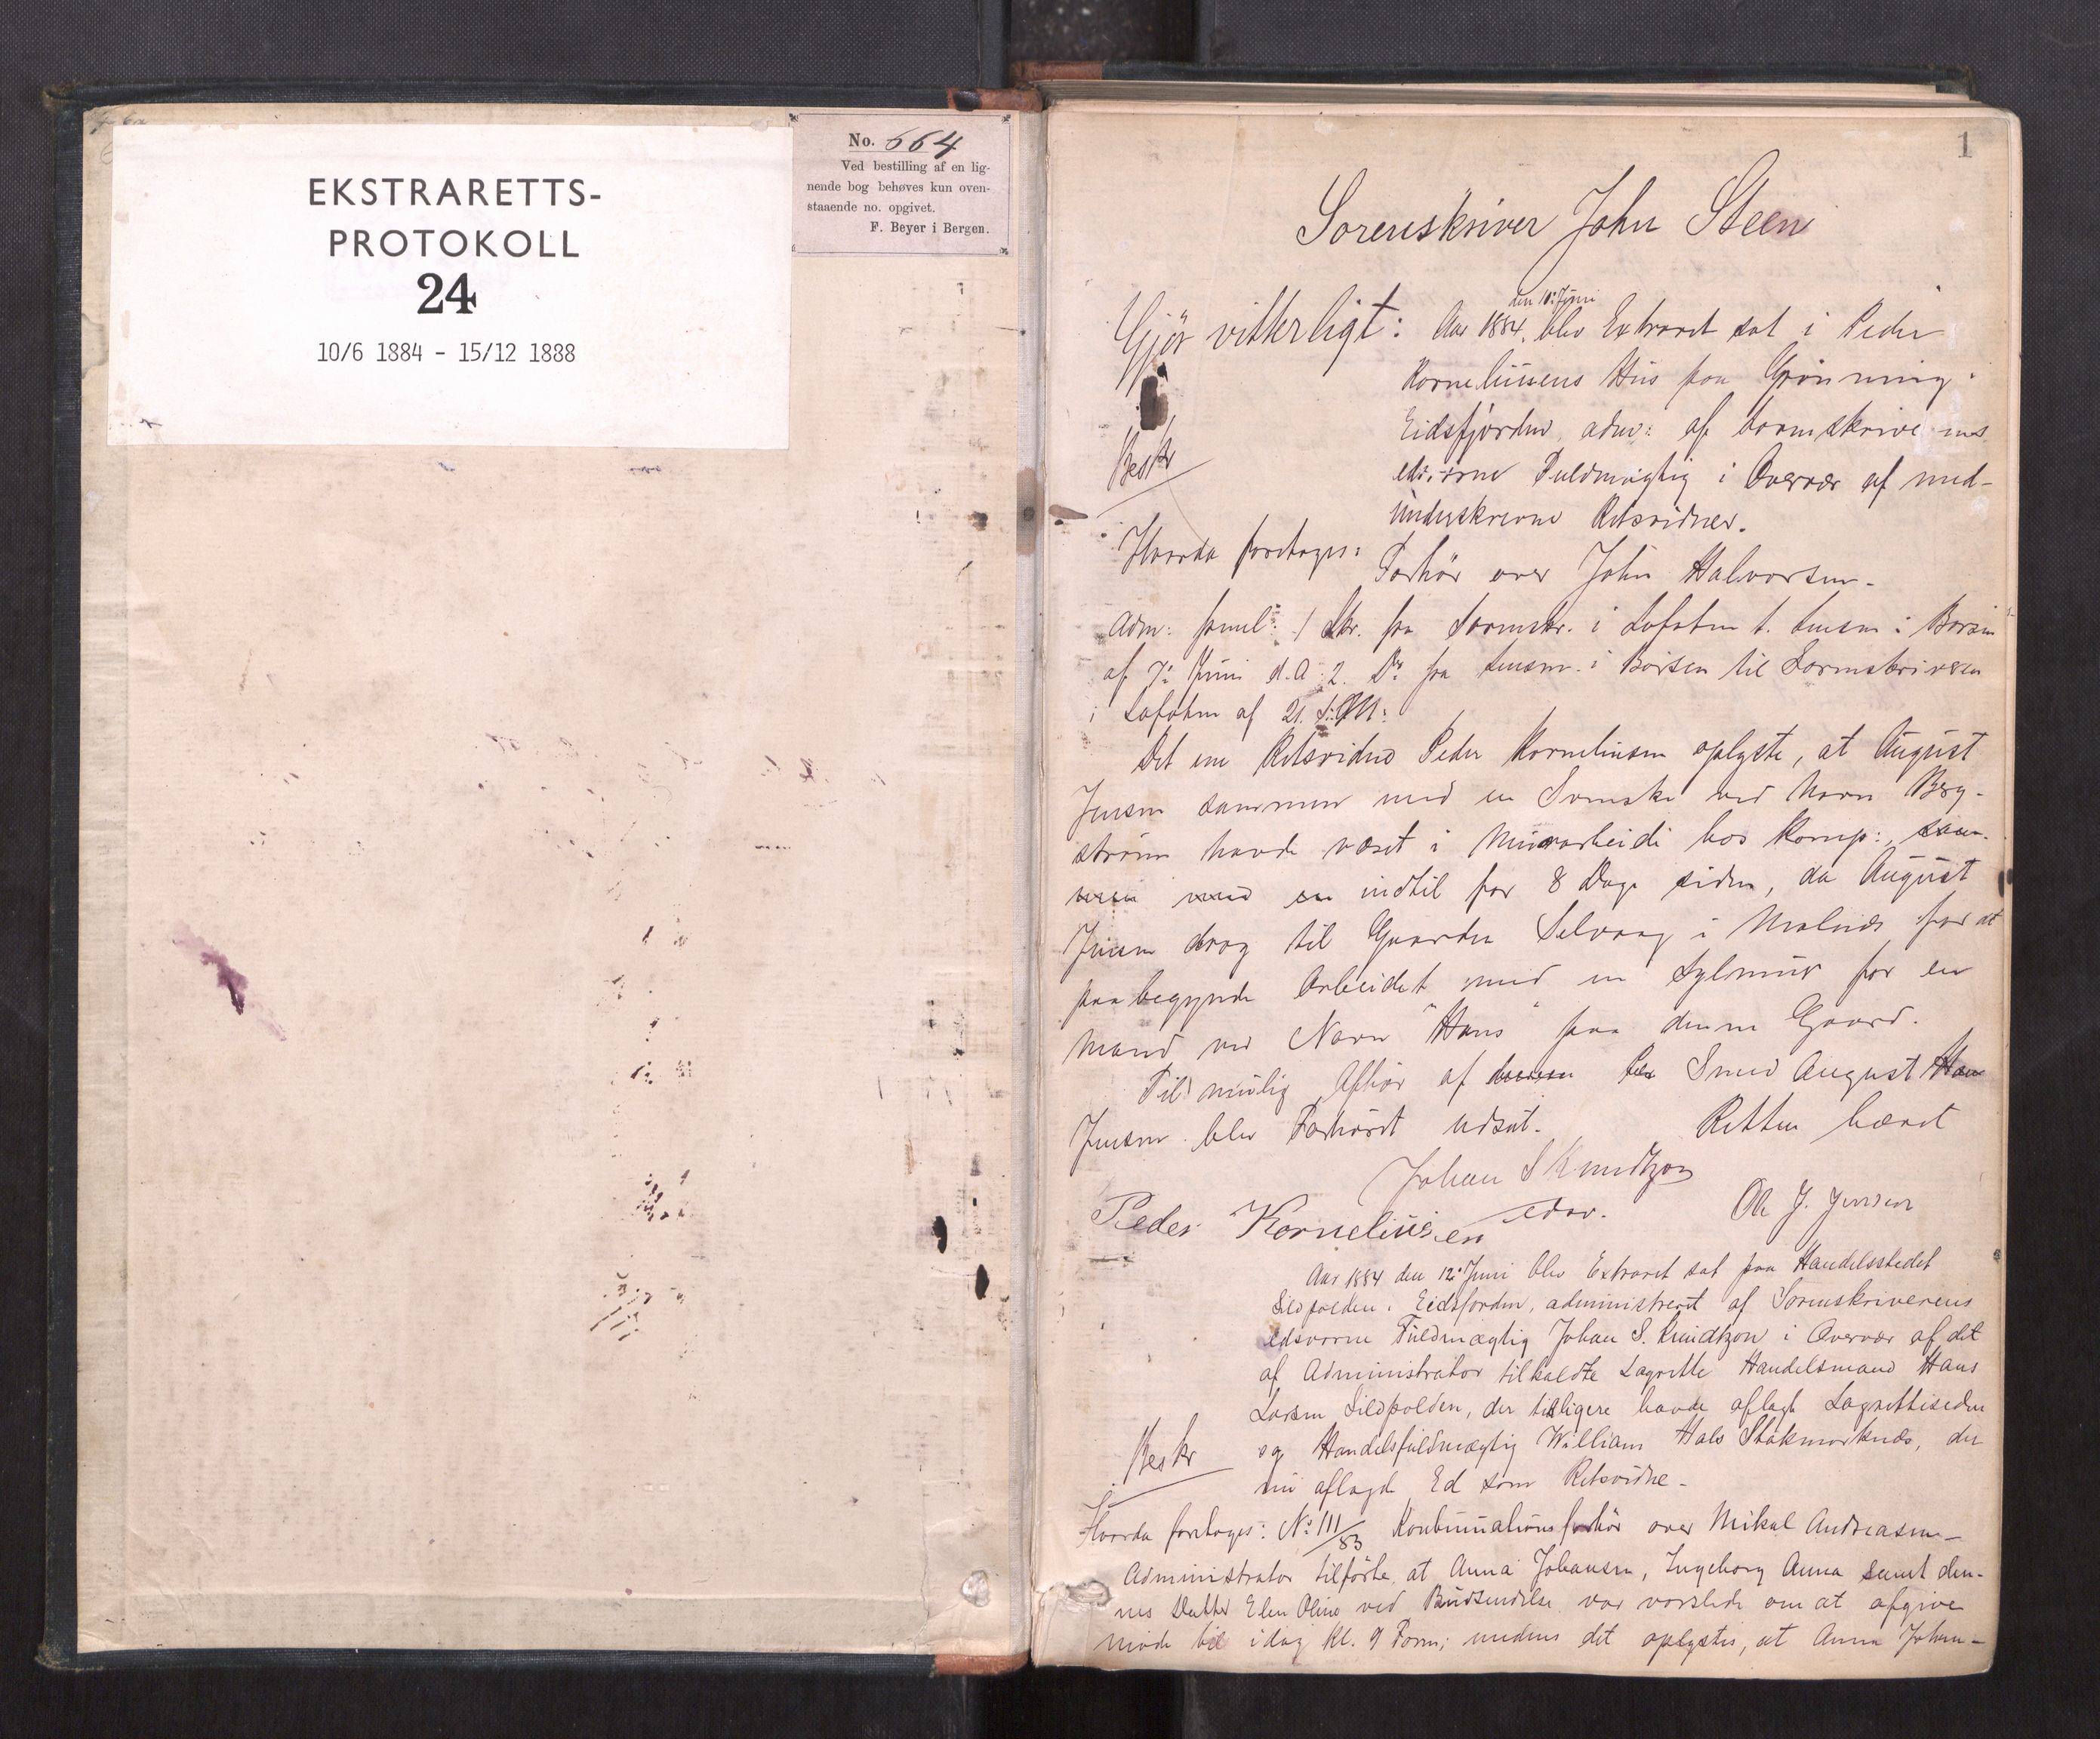 EKSTRARETTS-
PROTOKOLL
24
10/6 1884 - 15/12 1888
No. 664
Ved bestilling af en lig-
nende bog behøves kun oven-
staaende no. opgivet.
F. Beyer i Bergen.
1
Sorenskriver John Steen
Gjör vitterligt: Aar 1884, den 10: Juni blev Extraret sat i Peder
Korneliussens Hus paa Grönning i
Eidsfjorden, adm: af Sorenskriverens
edsvorne Fuldmægtig i Overvær af med-
underskrevne Retsvidner.
Beskr
Hvorda foretoges:
Forhör over John Halvorsen.
Adm: freml: 1 Skr. fra Sorenskr. i Lofoten t. Lensm. i Borsen
af 7: Juni d.A. 2. Do fra Lensm. i Börsen til Sorenskriveren
i Lofoten af 21. s: M:
Det ene Retsvidne Peder Korneliusen oplyste, at August
Jensen sammen med en Svenske ved Navn Berg-
ström havde været i Murarbeide hos Komp:, sam-
men med en indtil for 8 Dage siden, da August
Jensen drog til Gaarden Selvaag i Malnæs for at
paabegynde Arbeidet med en Sylmur for en
Mand ved Navn "Hans" paa denne Gaard.
Til mulig Afhör af Smed August Han
Jensen blev Forhöret udsat. Retten hævet
Johan S Knudtzon
edsv.
Peder Korneliussen
Ole J. Jensen
Aar 1884 den 12: Juni blev Extraret sat paa Handelsstedet
Sildpolden i Eidsfjorden, administreret af Sorenskriverens
edsvorne Fuldmægtig Johan S. Knudtzon i Overvær af det
af Administrator tilkaldte Lagrette Handelsmand Hans
Larsen Sildpolden, der tidligere havde aflagt Lagrettiseden
og Handelsfuldmægtig William Hals Stokmarknæs, der
nu aflagde Ed som Retsvidne.
Beskr
Hvorda foretoges: No 111/83 Kontinuationsforhör over Mikal Andreasen
Administrator tilförte, at Anna Johansen, Ingeborg Anna samt den-
nes Datter Elen Oline ved Budsendelse var varslede om at afgive
Möde til idag Kl. 9 Form; medens det oplystes, at Anna Johan-